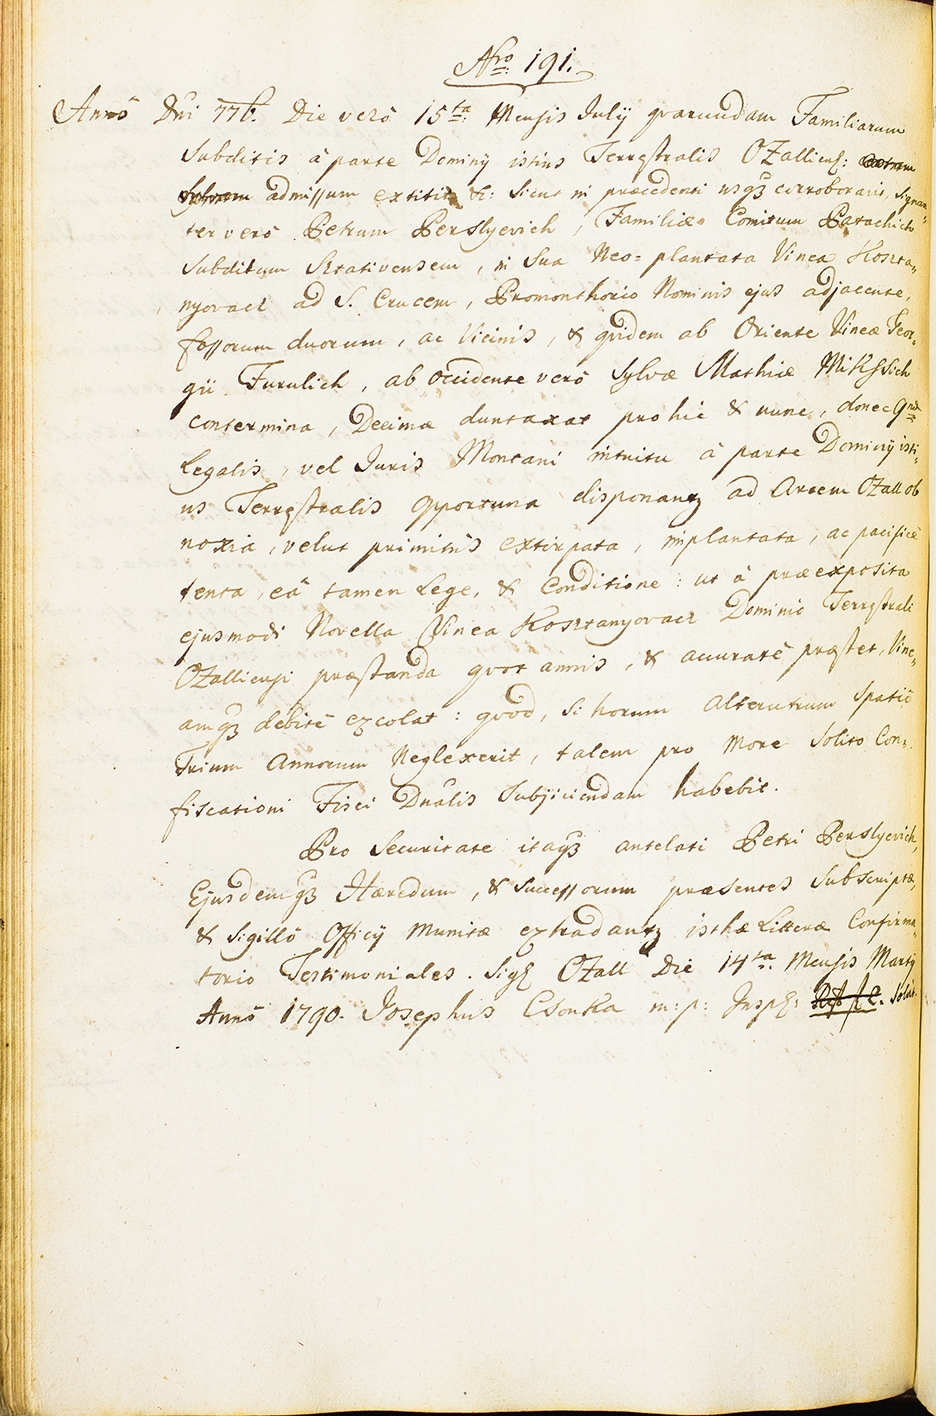 Nro 191.
Annô Dni 776. Die verô 15ta Mensis Julÿ quarundam Familiarum
Subditis â parte Dominÿ istius Terrestralis OZalliens:
admissum extitit &c: sicut in præcedenti usque corroboravit, signan=
ter verô Petrum Perslyevich, Familiæ Comitum Patachich
Subditum Stativensem, in Sua Neo=plantata Vinea Kosta=
nyovacz ad S. Crucem, Promonthorio Nominis ejus adjacente,
fossorum duorum, ac Vicinis, & quidem ab Oriente Vineæ Geor=
gii Furulich, ab Occidente verô Sylvæ Mathiæ Mikssich
contermina, Decimæ duntaxat pro hic & nunc, donec
Legalis, vel Juris Montani intuitu â parte Dominÿ isti=
us Terrestralis opportuna disponantur ad Arcem OZall ob
noxia, velut primitus extirpata, implantata, ac pacificè
tenta, eâ tamen Lege, & Conditione: ut â præexposita
ejusmodi Novella Vinea Kostanyovacz Dominio Terrestrali
OZalliensi præstanda quot annis, & accuratê præstet, Vine=
amque debitê excolat: quod, si horum alterutrum Spatiô
Trium Annorum Neglexerit, talem pro More Solito Con=
fiscationi Fisci Dnalis Subjiciendam habebit.
Pro Securitate itaque antelati Petri Perslyevich,
Ejusdemque Hæredum, & Successorum præsentes Subscriptæ,
& Sigillô Officÿ Munitæ extradantur isthæ Litteræ Confirma=
torio Testimoniales. Sigl OZall Die 14ta Mensis Martÿ
Annô 1790. Josephus Csonka m: p: Inspr: